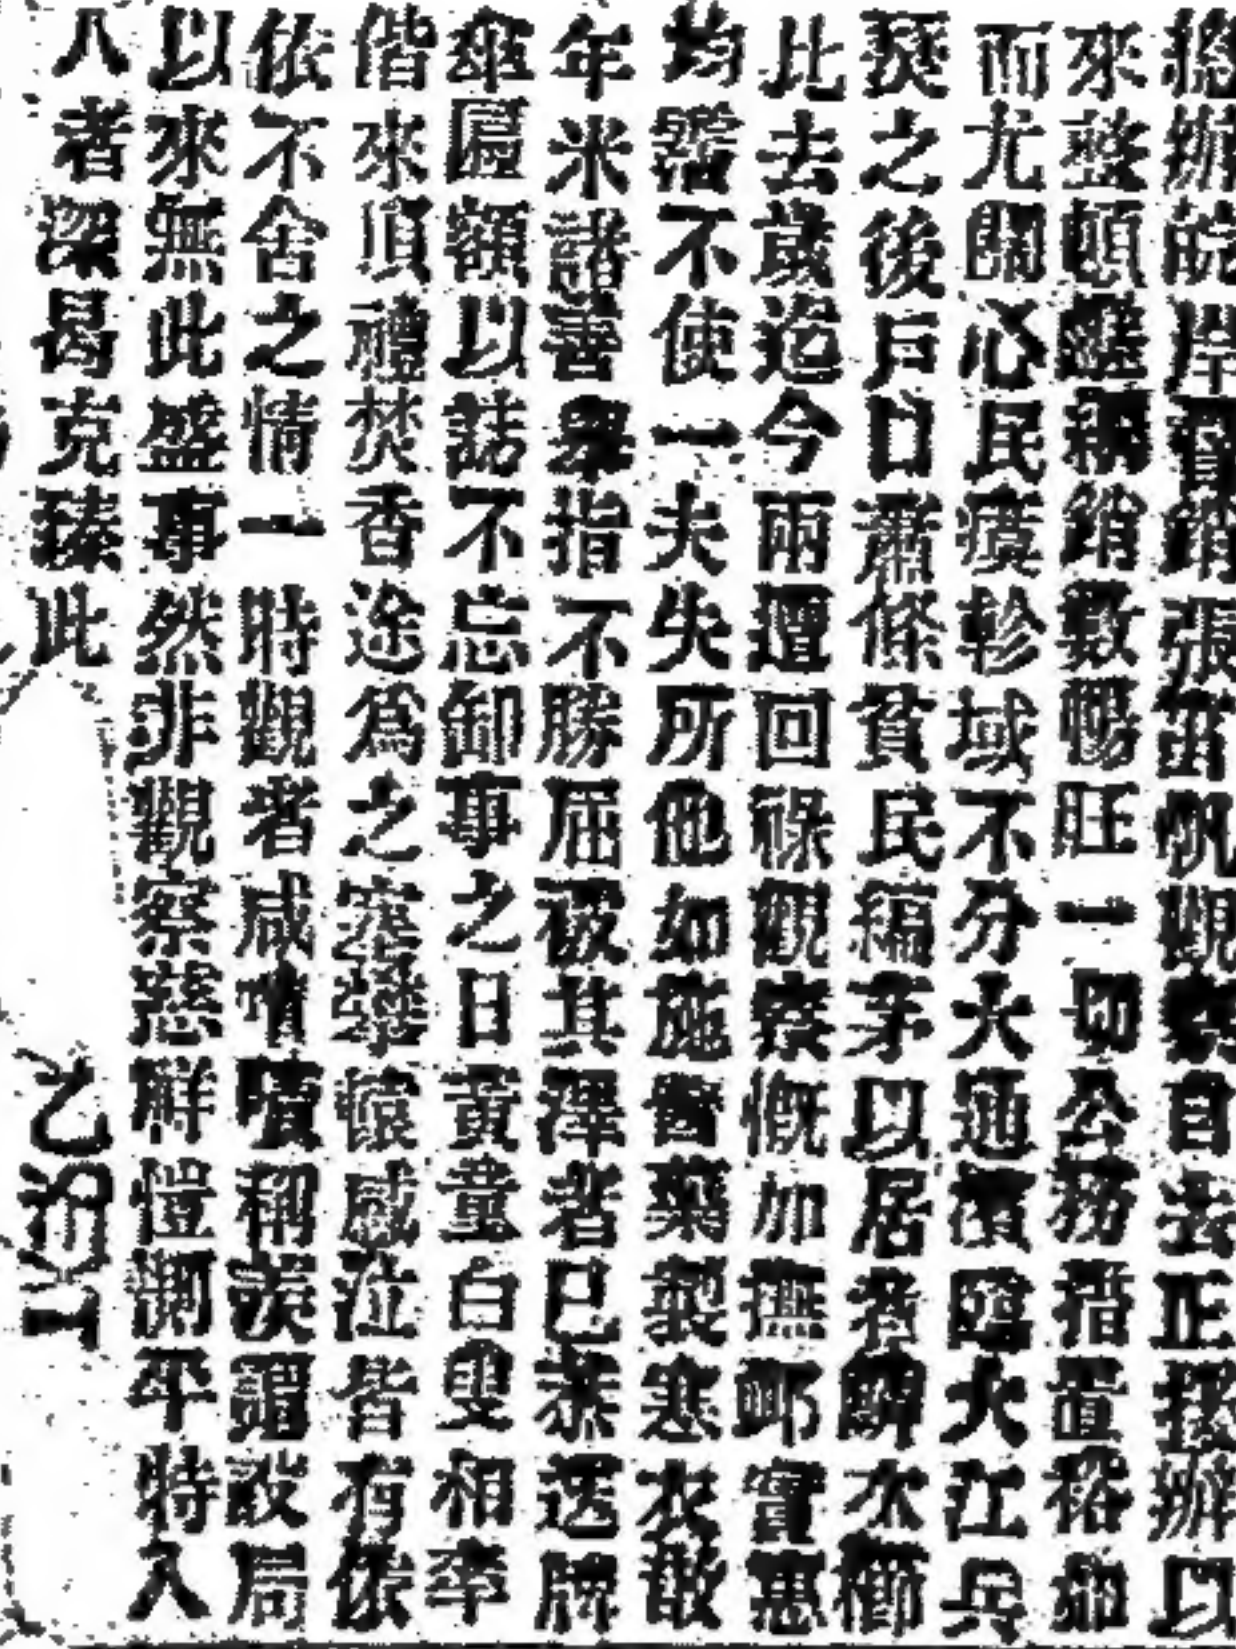 總辦皖岸督銷張出帆觀察自去正接辦以
來整頓鹺綱銷數暢旺一切公務措置裕如
而尤關心民瘼軫域不分大通濱臨大江兵
燹之後戶口蕭條貧民編茅以居者鱗次櫛
比去歲迄今兩遭回祿觀察慨加撫卹實惠
均霑不使一夫失所他如施醫藥製寒衣散
年米諸善舉指不勝屈被其澤者已恭送牌
傘匾額以誌不忘卸事之日黃童白叟相率
偕來頂禮焚香途為之塞攀轅感泣皆有依
依不舍之情一時觀者咸嘖嘖稱羨謂設局
以來無此盛事然非觀察慈祥愷惻平時入
人者深曷克臻此